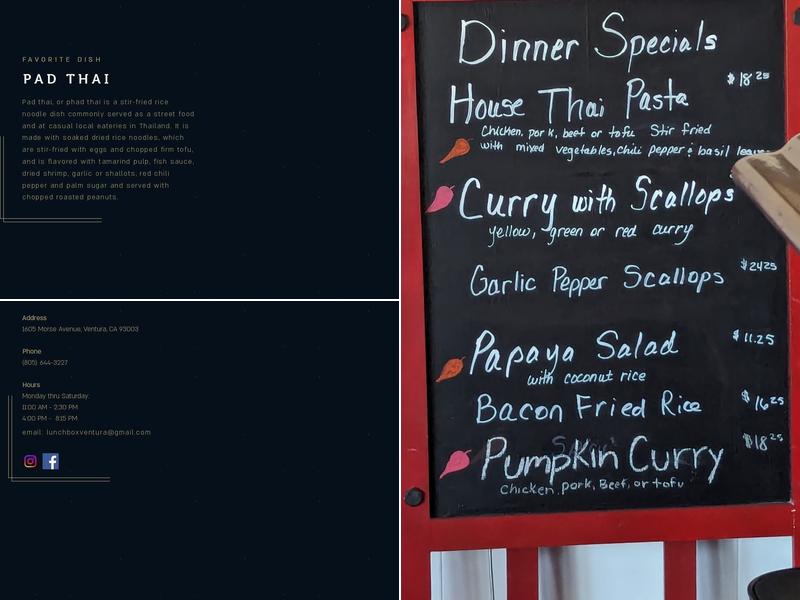 FAVORITE DISH
PAD THAI
Pad thai, or phad thai is a stir-fried rice
noodle dish commonly served as a street food
and at casual local eateries in Thailand. It is
made with soaked dried rice noodles, which
are stir-fried with eggs and chopped firm tofu,
and is flavored with tamarind pulp, fish sauce,
dried shrimp, garlic or shallots, red chili
pepper and palm sugar and served with
chopped roasted peanuts.
Address
1605 Morse Avenue, Ventura, CA 93003
Phone
(805) 644-3227
Hours
Monday thru Saturday:
11:00 AM - 2:30 PM
4:00 PM - 8:15 PM
email: lunchboxventura@gmail.com
Dinner Specials
House Thai Pasta $18.25
Chicken, pork, beef or tofu Stir fried
with mixed vegetables, chili pepper & basil
Curry with Scallops
yellow, green or red curry
Garlic Pepper Scallops $24.25
Papaya Salad $11.25
with coconut rice
Bacon Fried Rice $16.25
Pumpkin Curry $18.25
Chicken, pork, Beef, or tofu